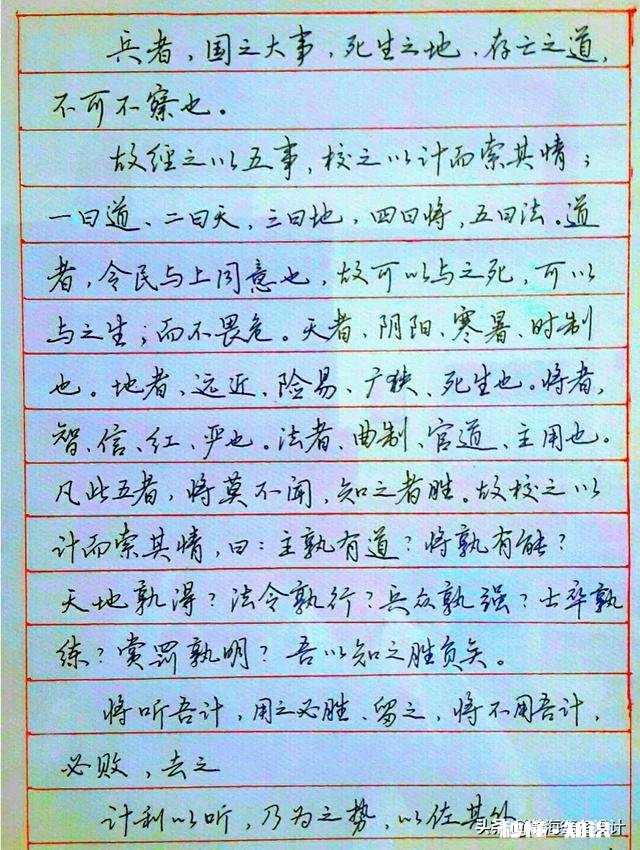 兵者，国之大事，死生之地、存亡之道，
不可不察也。
故经之以五事，校之以计而索其情；
一曰道、二曰天，三曰地，四曰将，五曰法。道
者，令民与上同意也，故可以与之死，可以
与之生；而不畏危。天者、阴阳、寒暑、时制
也。地者、远近、险易、广狭、死生也。将者，
智、信、红、严也。法者、曲制、官道、主用也。
凡此五者，将莫不闻，知之者胜。故校之以
计而索其情，曰：主孰有道？将孰有能？
天地孰得？法令孰行？兵众孰强？士卒孰
练？赏罚孰明？吾以知之胜负矣。
将听吾计，用之必胜、留之，将不用吾计，
必败，去之
计利以听，乃为之势，以佐其外
头条